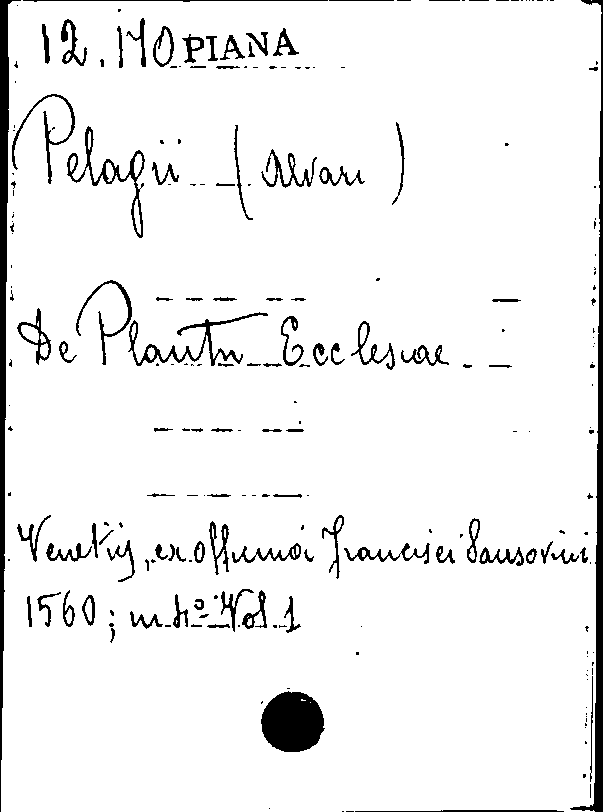 12.170 PIANA
Pelagii (Alvari)
De Planctu Ecclesiae
Venetiis, ex officina Francisci Sansovini
1560; in 4º Vol 1